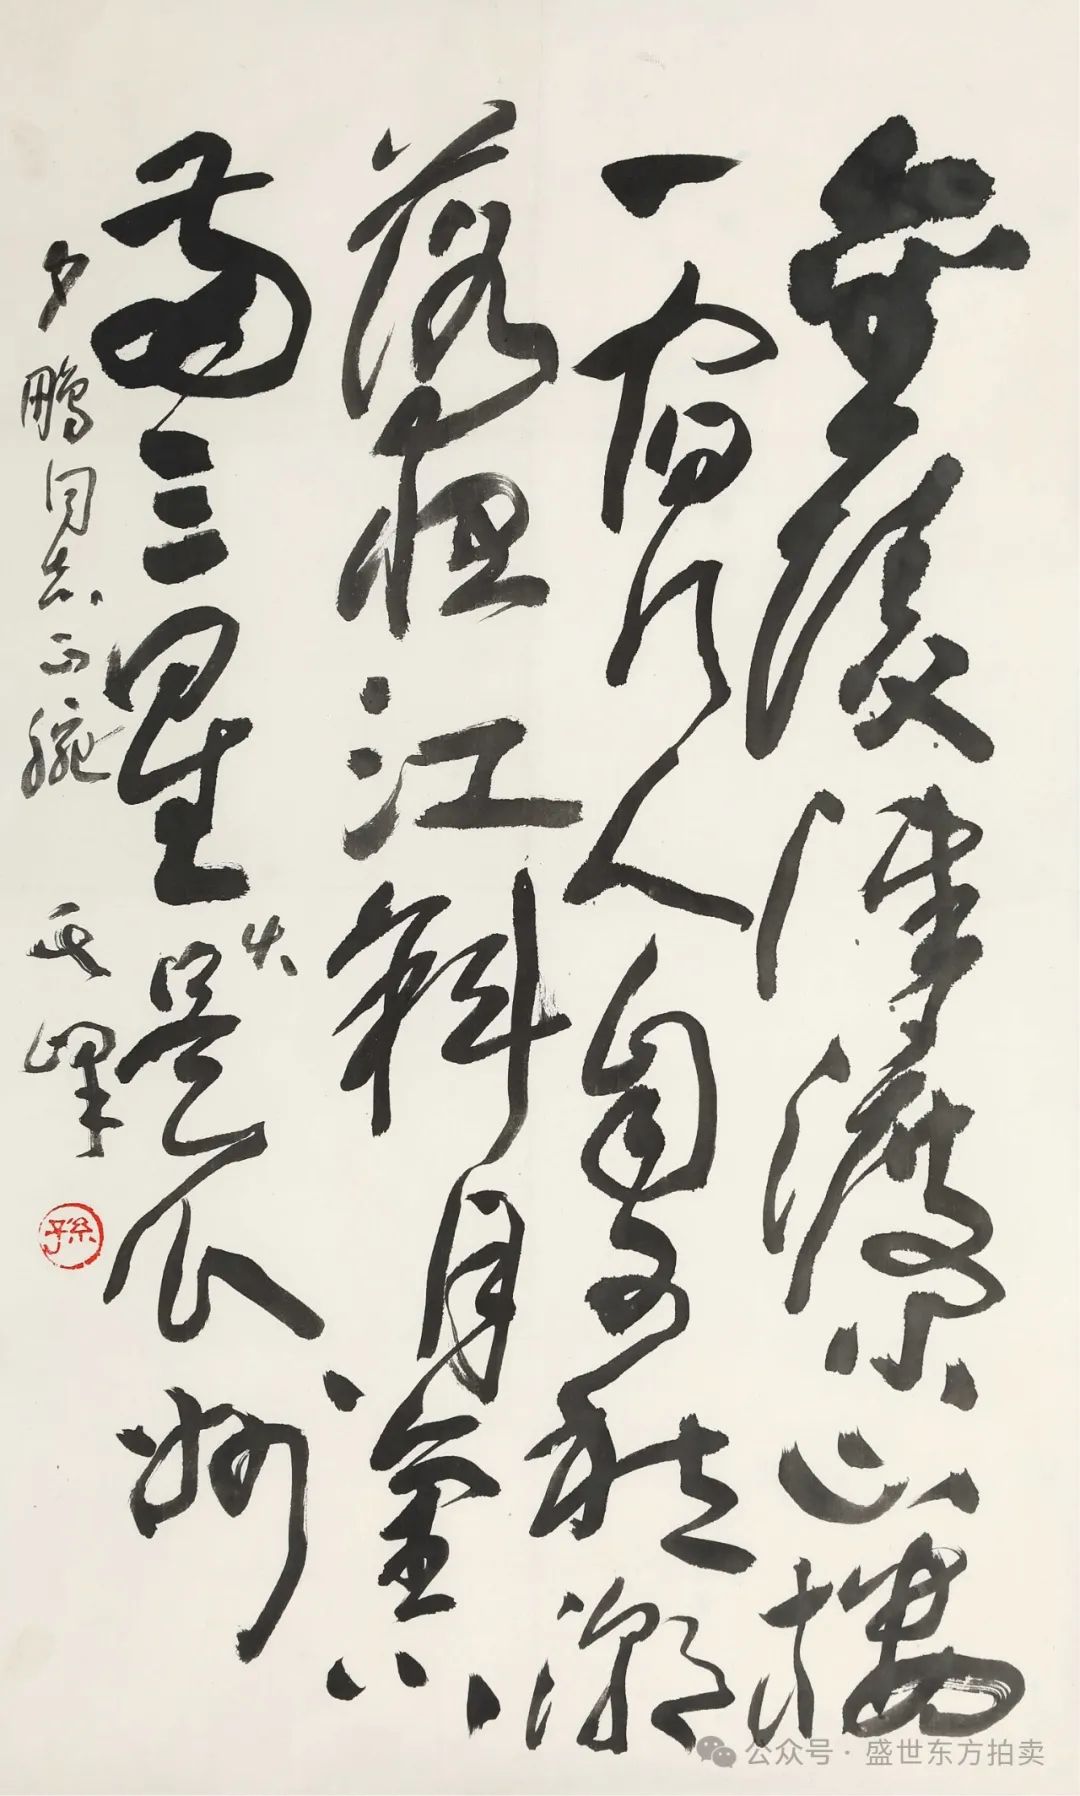 金陵津渡小山樓
一宿行人自可愁潮
落夜江斜月裏
兩三星火是瓜州
少鵬同志正腕
其峰
孫
公众号·盛世东方拍卖